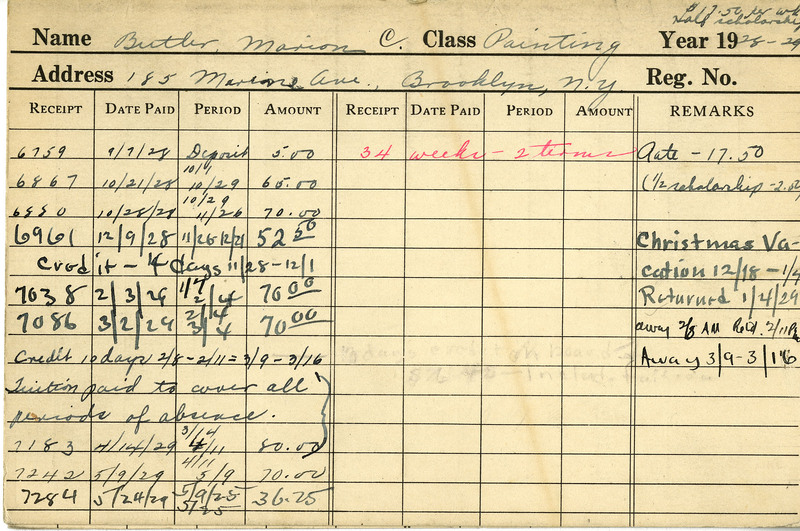 $17.50 per wk
half scholarship
Name Butler, Marion C. Class Painting Year 1928-29
Address 185 Marine Ave., Brooklyn, N.Y. Reg. No.
RECEIPT DATE PAID PERIOD AMOUNT RECEIPT DATE PAID PERIOD AMOUNT REMARKS
6759 9/7/28 Deposit 5.00 34 weeks - 2 terms Rate - 17.50
6867 10/21/28 10/1 10/29 65.00 (1/2 scholarship - 2.50
6880 10/28/28 10/29 11/26 70.00
6961 12/9/28 11/26 12/21 52.50 Christmas Va-
Credit - 4 days 11/28-12/1 cation 12/18 - 1/4
7038 2/3/29 1/7 2/4 70.00 Returned 1/4/29
7086 3/2/29 2/4 3/4 70.00 away 2/8 AM Retd. 2/11 PM
Credit 10 days 2/8-2/11 = 3/9-3/16 Away 3/9-3/16
Tuition paid to cover all
periods of absence.
7183 4/14/29 3/14 4/11 80.00
7242 5/9/29 4/11 5/9 70.00
7284 5/24/29 5/9/25 5/25 36.25